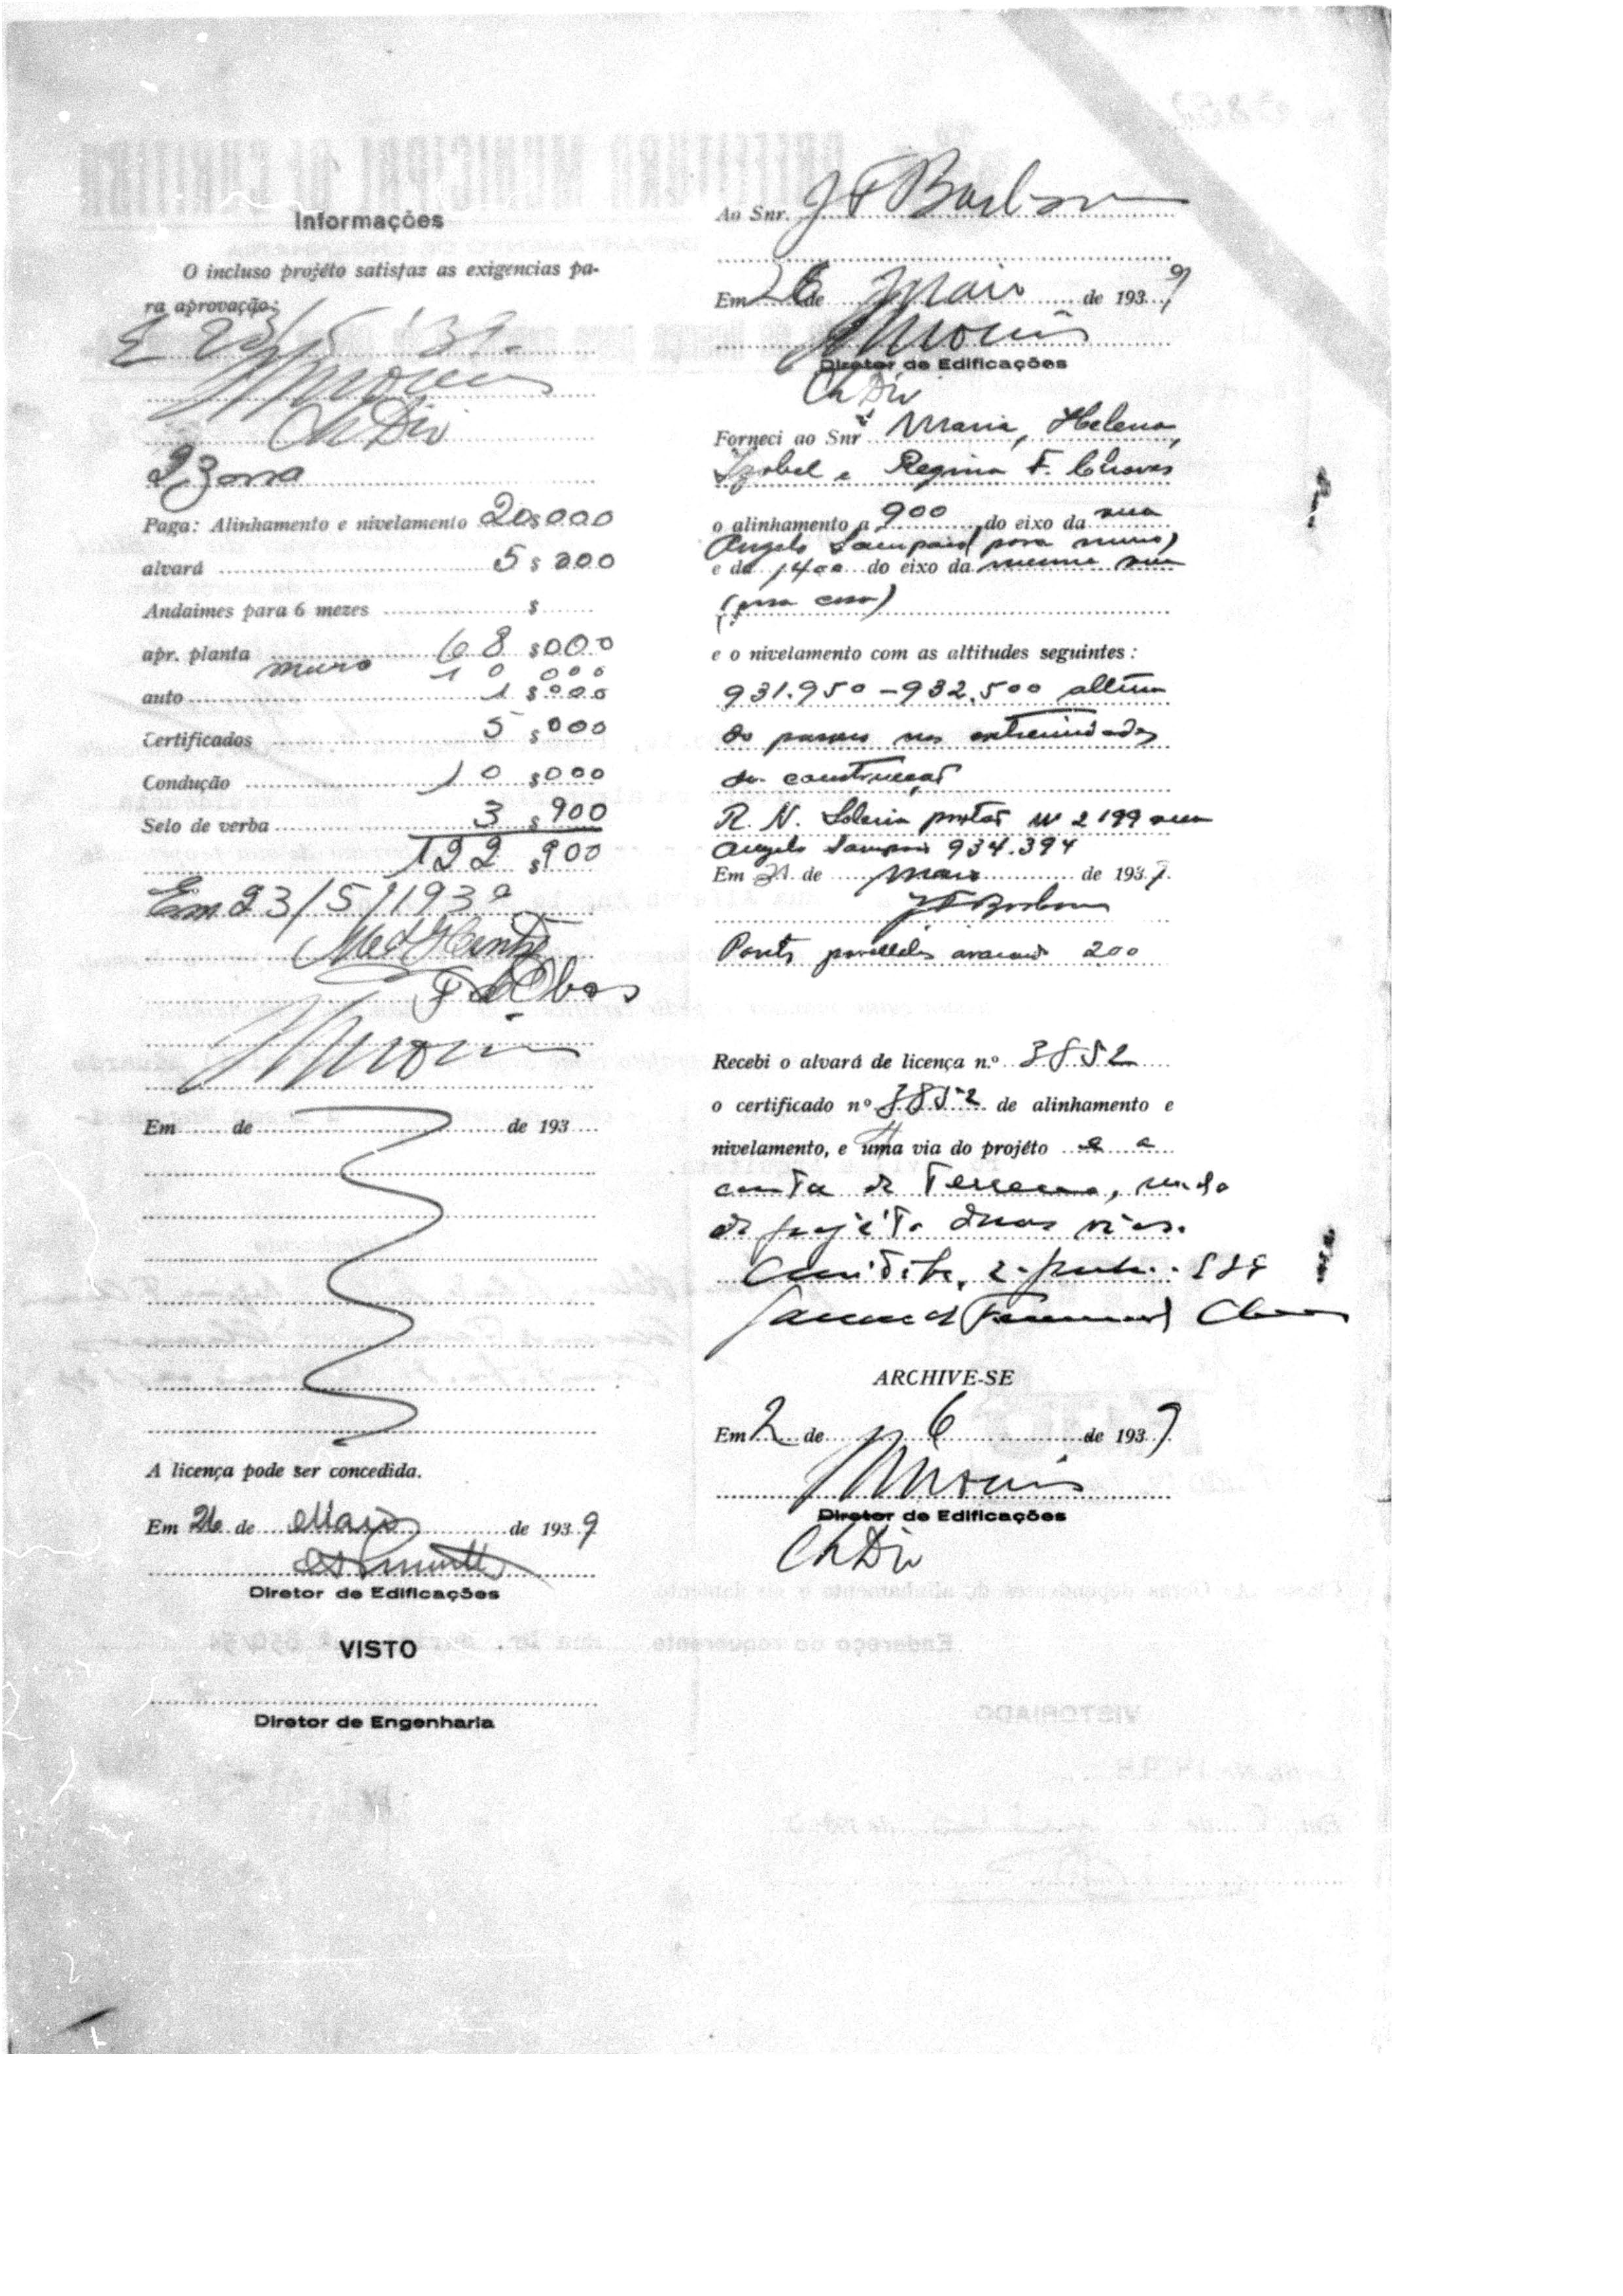 Informações
O incluso projéto satisfaz as exigencias pa-
ra aprovação:
E 23/5/39.
Ch Div
2ª zona
Paga: Alinhamento e nivelamento 20$000
alvará 5$000
Andaimes para 6 mezes $
apr. planta 68$000
muro 10 000
auto 1$000
Certificados 5$000
Condução 10$000
Selo de verba 3$900
122$900
Em 23/5/1939
Em de de 193
A licença pode ser concedida.
Em 26 de Maio de 1939
Diretor de Edificações
VISTO
Diretor de Engenharia
Ao Snr. J F Barbosa
Em 26 de Maio de 1939
Diretor de Edificações
Ch Div
Forneci ao Snr Maria, Helena,
Izabel e Regina F. Chaves
o alinhamento a 900 do eixo da rua
Angelo Sampaio (para muro)
e de 1400 do eixo da mesma rua
(para casa)
e o nivelamento com as altitudes seguintes:
931.950 - 932.500 altura
do passeio nas extremidades
da construcção
R. N. Soleira portão nº 2199 rua
Angelo Sampaio 934.394
Em 31 de Maio de 1939
J F Barbosa
200
Recebi o alvará de licença n.º 3852
o certificado nº 3852 de alinhamento e
nivelamento, e uma via do projéto e a
de Terreno, sendo
do projéto duas vias.
Curitiba, 2
Chaves
ARCHIVE-SE
Em 2 de 6 de 1939
Diretor de Edificações
Ch Div